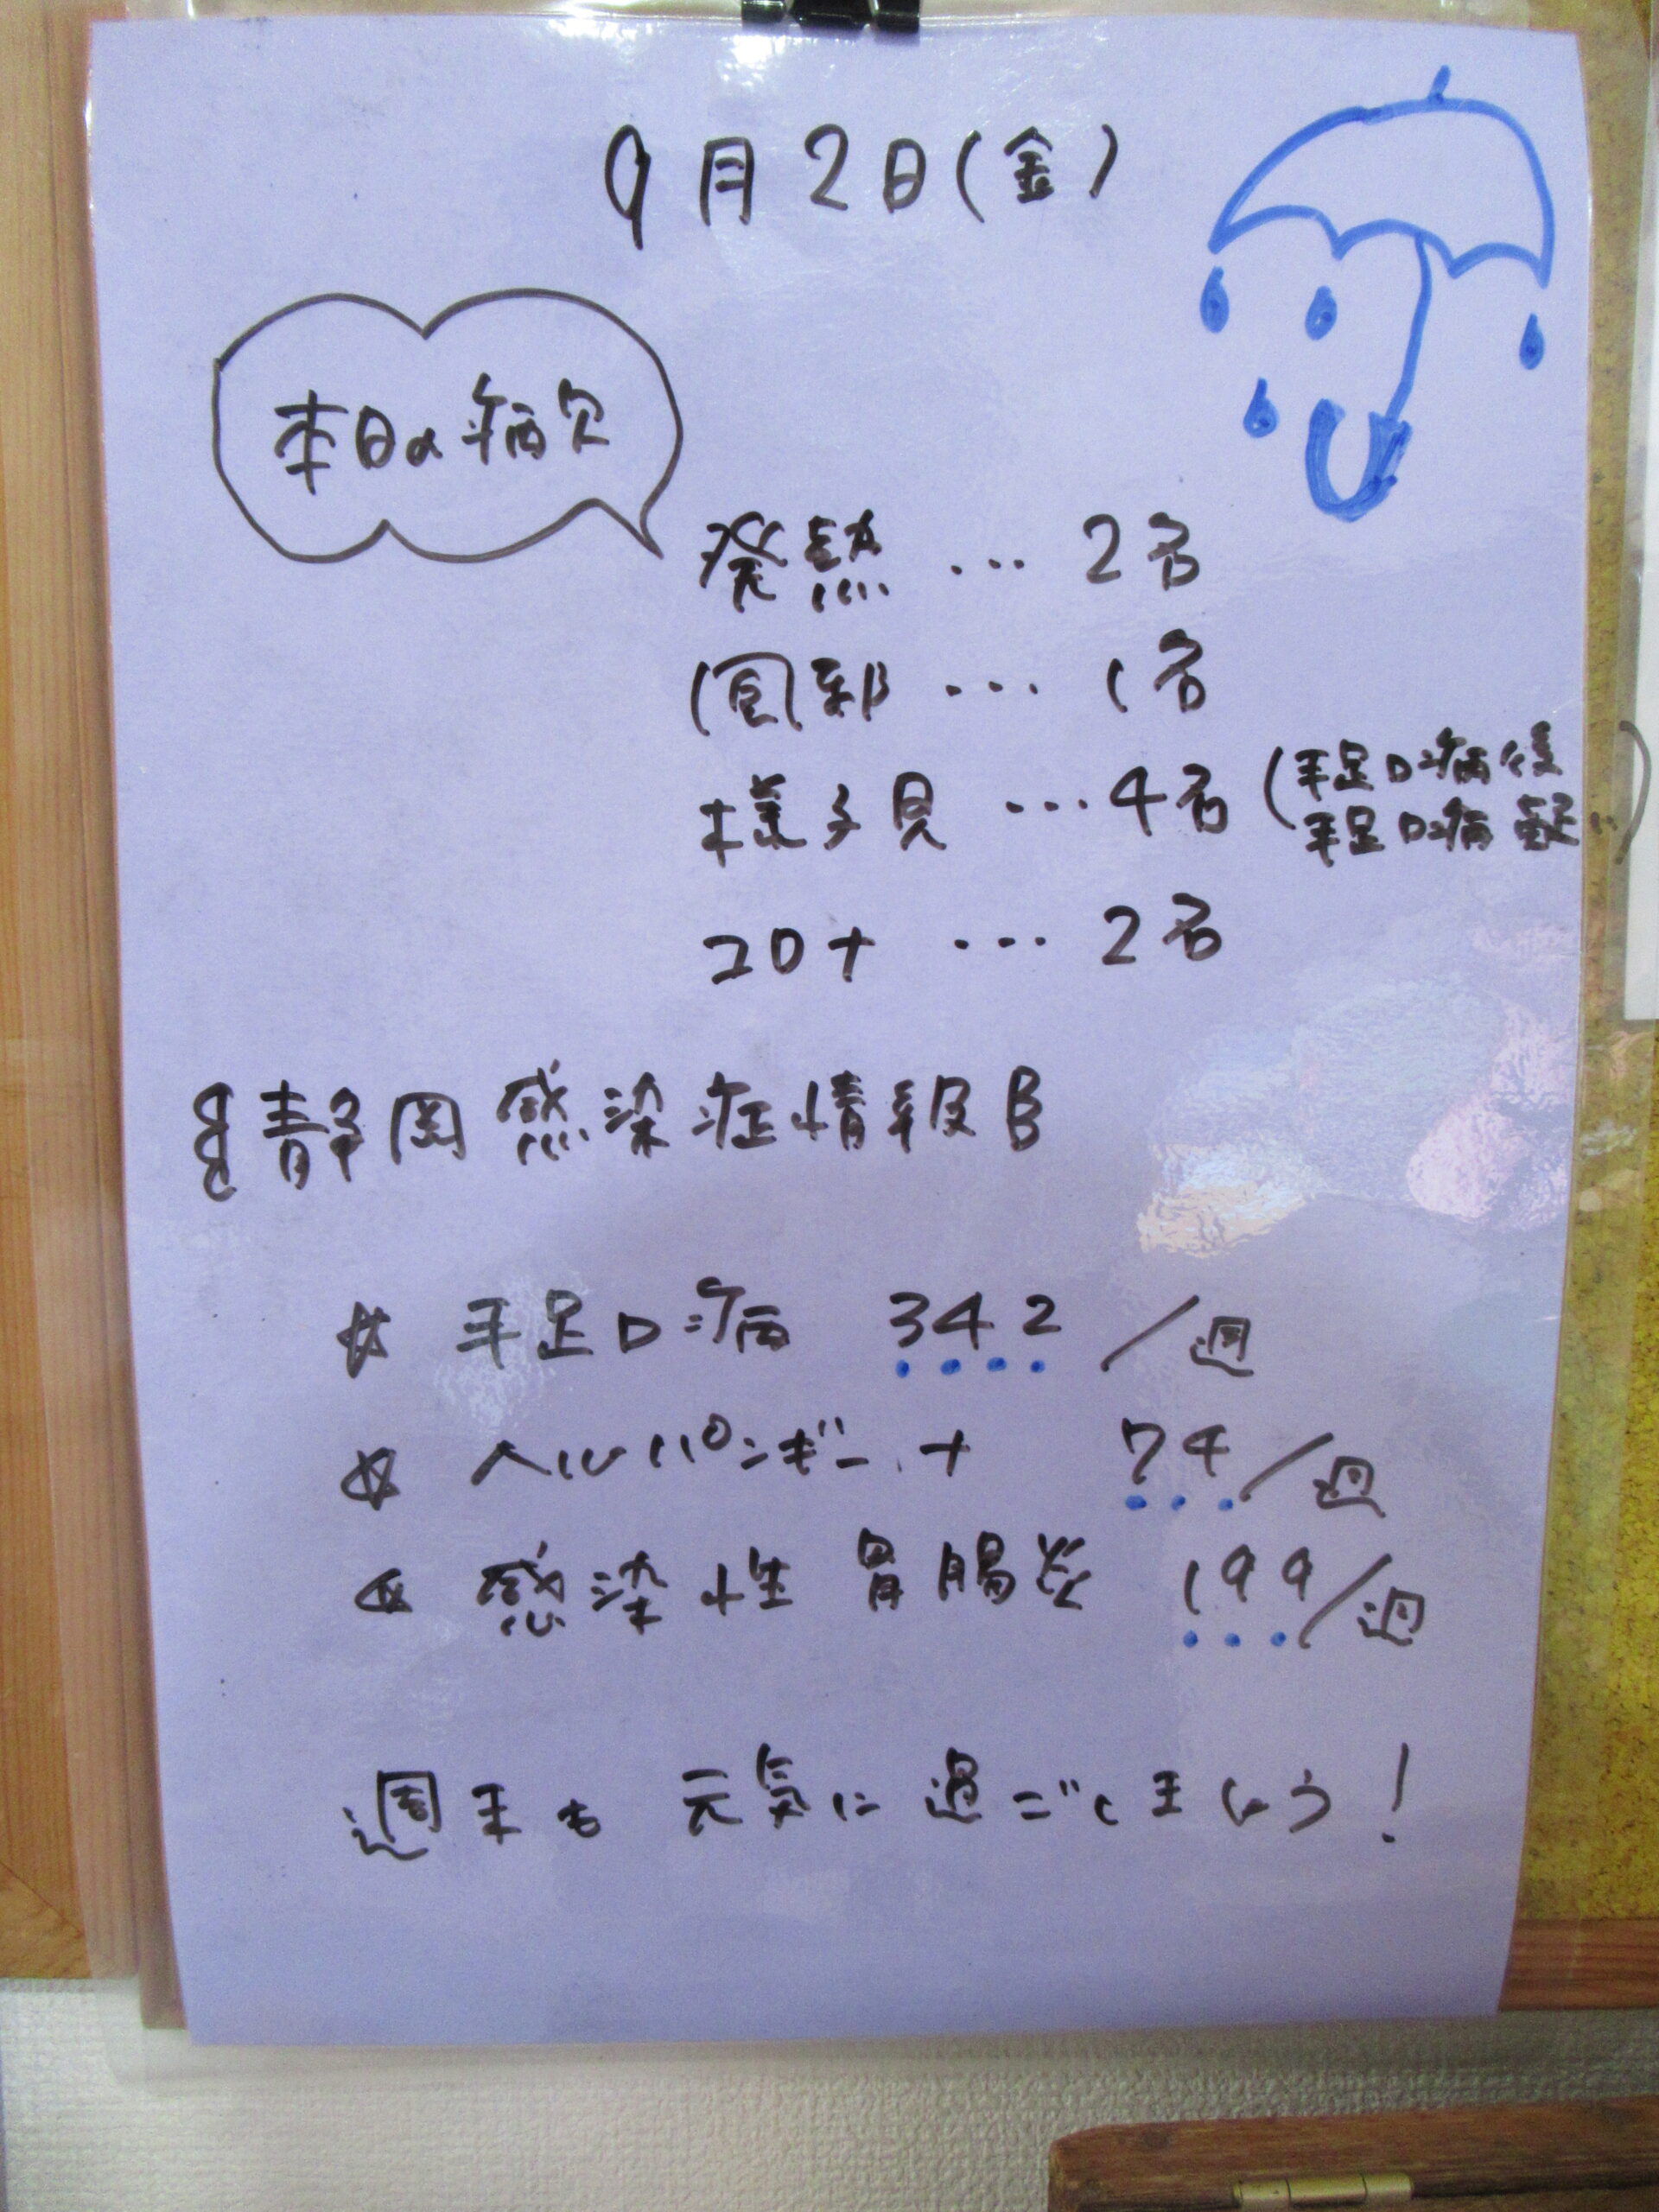 9月2日(金)
本日の病欠
発熱 … 2名
風邪 … 1名
様子見 … 4名 (手足口病後
手足口病疑い)
コロナ … 2名
静岡感染症情報
☆ 手足口病 342 /週
☆ ヘルパンギーナ 74/週
☆ 感染性胃腸炎 199/週
週末も元気に過ごしましょう!